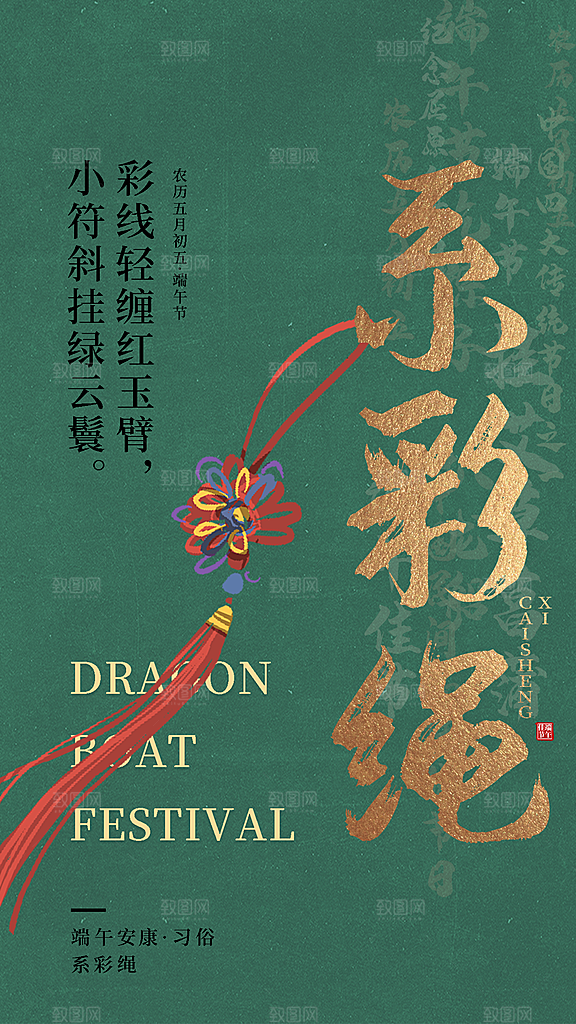 系彩绳
XI
CAISHENG
端午
佳节
农历五月初五·端午节
彩线轻缠红玉臂，
小符斜挂绿云鬟。
DRAGON
BOAT
FESTIVAL
端午安康·习俗
系彩绳
致图网